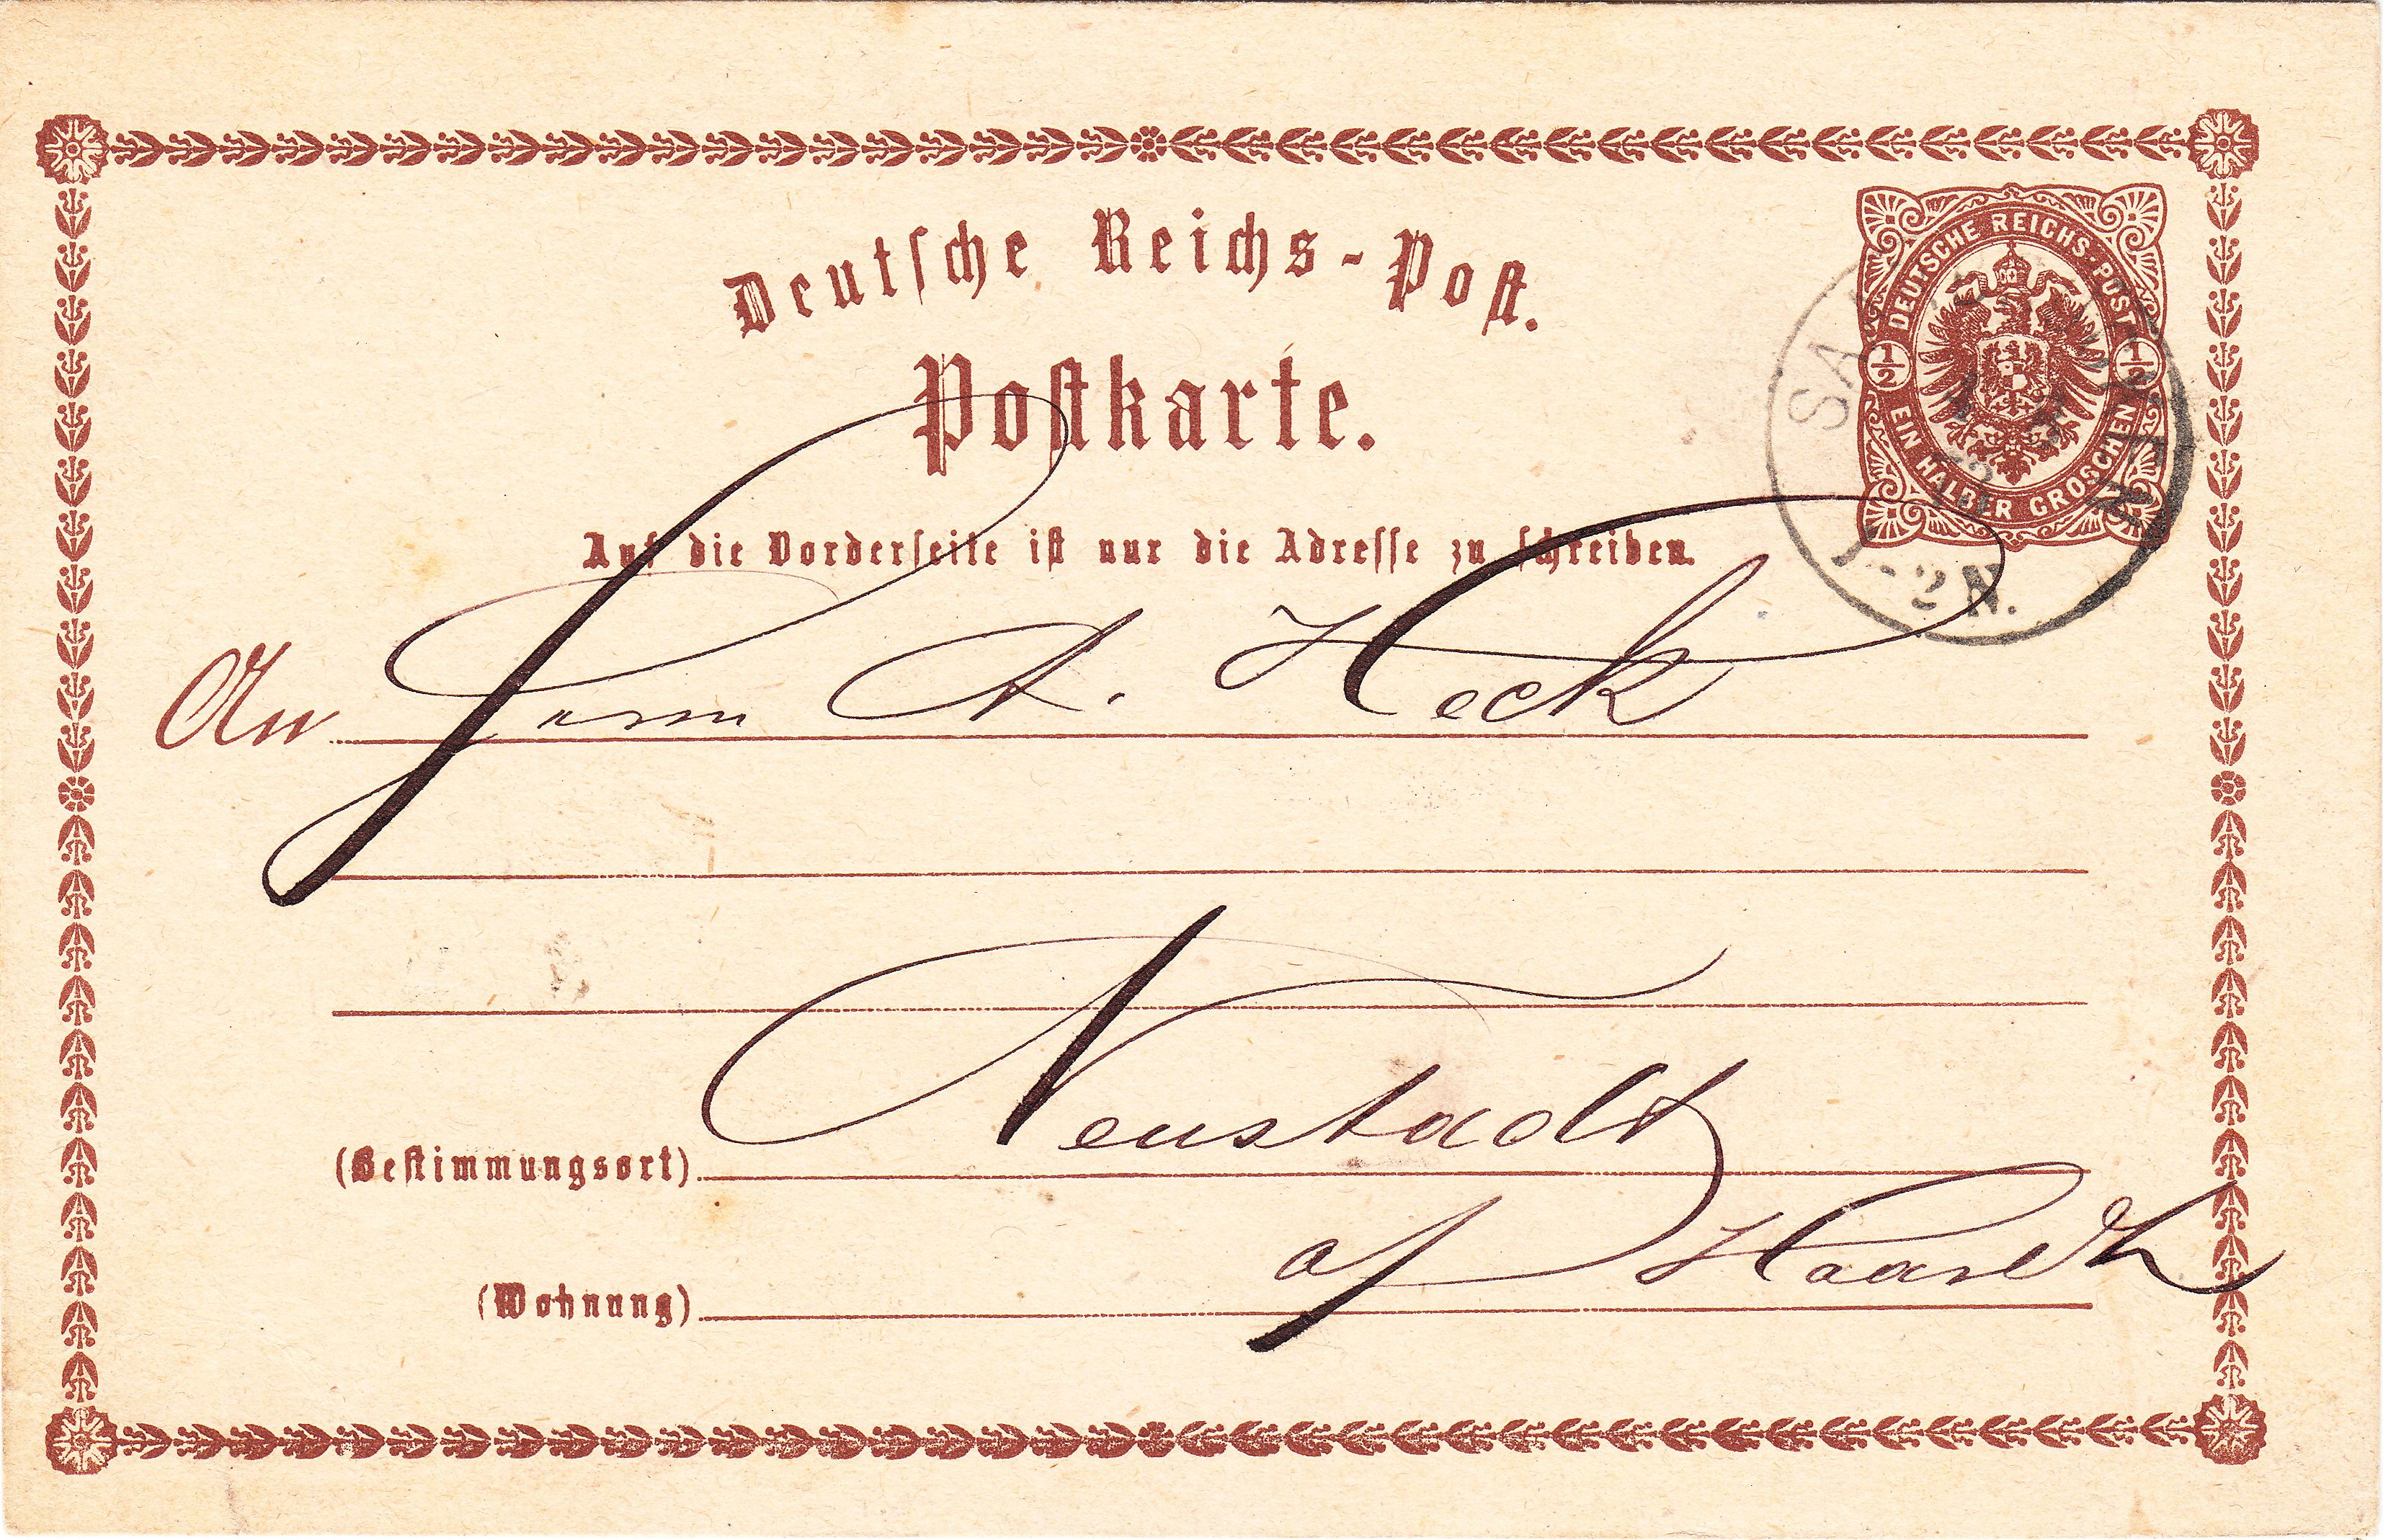 Deutsche Reichs-Post.
Postkarte.
DEUTSCHE REICHS-POST
1/2 1/2
EIN HALBER GROSCHEN
1-2 N.
Auf die Vorderseite ist nur die Adresse zu schreiben.
An Herrn A. Heck
Neustadt
(Bestimmungsort)
a/ Haardt
(Wohnung)